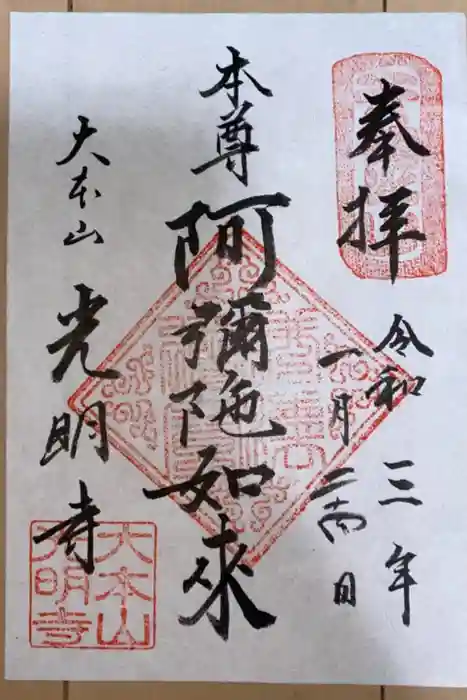 奉拝
令和三年
一月二十四日
本尊
阿彌陀如來
大本山
光明寺
大本山
光明寺